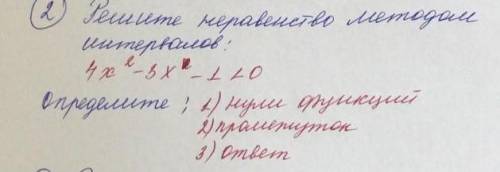 ② Решите неравенство методом
интервалов:
4x² - 3x - 1 < 0
Определите: 1) нули функций
2) промежуток
3) ответ